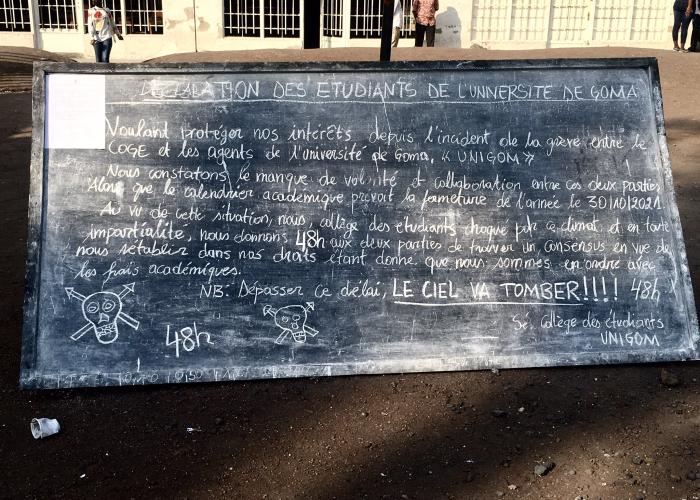 DECLALATION DES ETUDIANTS DE L'UNIVERSITE DE GOMA
Voulant proteger nos intérêts depuis l'incident de la grève entre le
COGE et les agents de l'université de Goma, « UNIGOM »
Nous constatons le manque de volonté et collaboration entre ces deux parties
Alors que le calendrier académique prevoit la fermeture de l'année le 30/10/2021.
Au vu de cette situation, nous, collège des étudiants choqué par ce climat et en toute
impartialité, nous donnons 48h aux deux parties de trouver un consensus en vue de
nous rétablir dans nos droits étant donné que nous sommes en ordre avec
les frais académiques.
NB: Dépasser ce délai, LE CIEL VA TOMBER!!!! 48h
48h
Sé, Collège des étudiants
UNIGOM